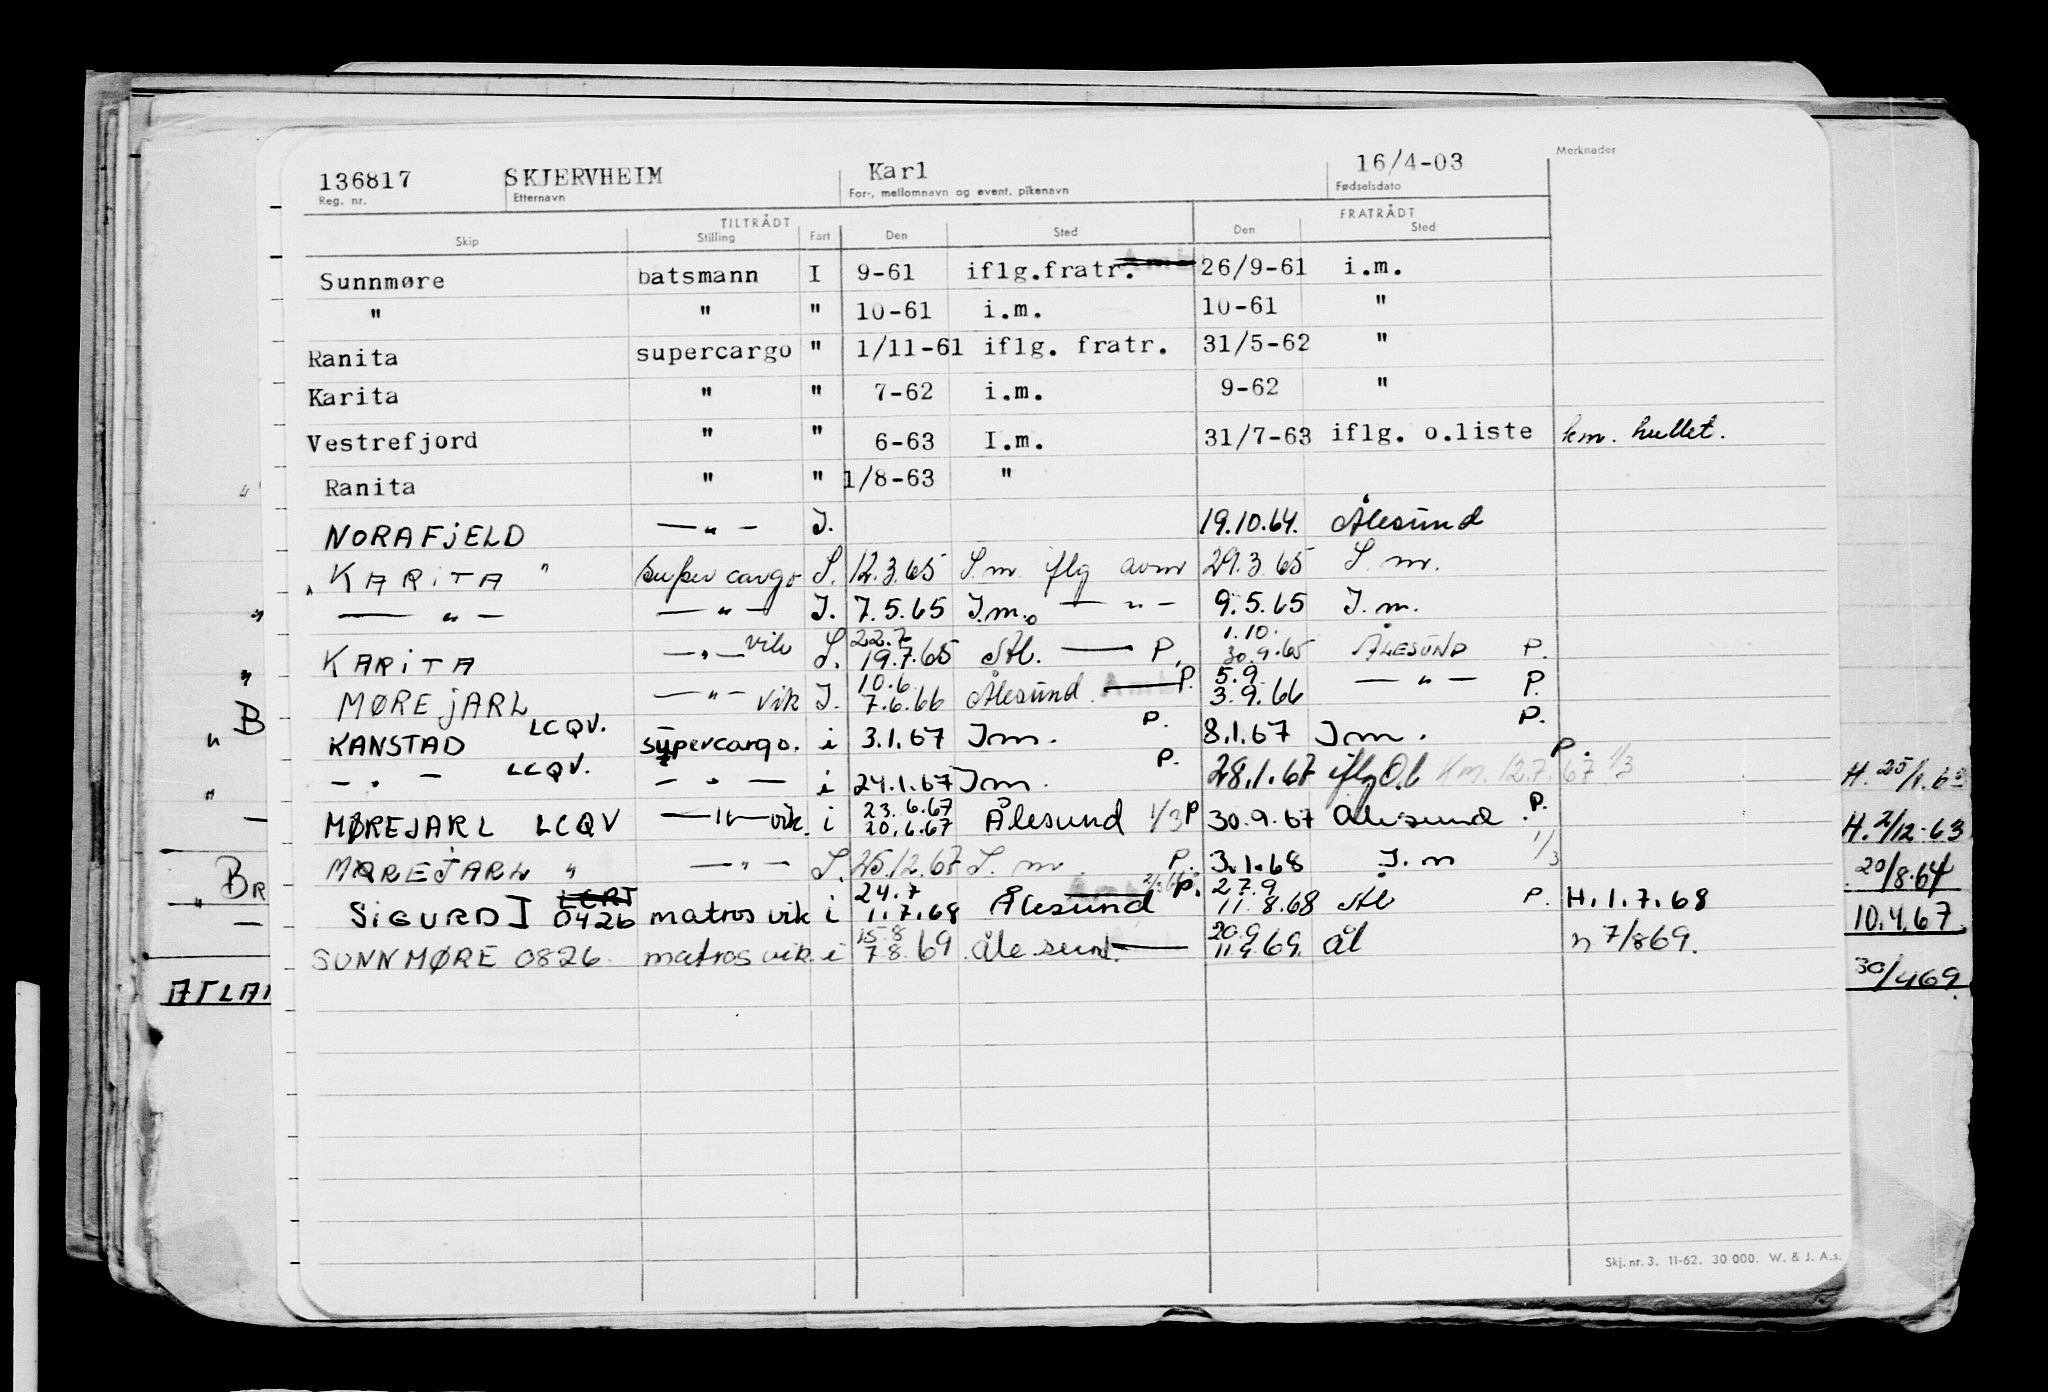 136817 SKJERVHEIM Karl 16/4-03 Merknader
Reg. nr. Etternavn For-, mellomnavn og event. pikenavn Fødselsdato
TILTRÅDT FRATRÅDT
Skip Stilling Fart Den Sted Den Sted
Sunnmøre batsmann I 9-61 iflg.fratr. 26/9-61 i.m.
" " " 10-61 i.m. 10-61 "
Ranita supercargo " 1/11-61 iflg. fratr. 31/5-62 "
Karita " " 7-62 i.m. 9-62 "
Vestrefjord " " 6-63 I.m. 31/7-63 iflg. o.liste km. hullet.
Ranita " " 1/8-63 "
NORAFJELD — " — I. 19.10.64. Ålesund
" KARITA " supercargo I. 12.3.65 I.m. iflg avm 29.3.65 I.m.
— " — — " — I. 7.5.65 I.m. — " — 9.5.65 I.m.
KARITA — " — vik I. 22.7 19.7.65 Ål. — P. 1.10. 30.9.65 ÅLESUND P.
MØREJARL — " — vik I. 10.6 7.6.66 Ålesund P. 5.9 3.9.66 — " — P.
KANSTAD LCQV. supercargo. i 3.1.67 I m. P. 8.1.67 I m. P.
— " — LCQV. — " — i 24.1.67 I m. P. 28.1.67 iflg O.l Km. 12.7.67 P. 1/3
MØREJARL LCQV — " — vik. i 23.6.67 20.6.67 Ålesund 1/3 P 30.9.67 Ålesund P.
MØREJARL " — " — I. 25.12.67 I. m. P. 3.1.68 I. m 1/3
SIGURD I 0426 matros vik i 24.7 11.7.68 Ålesund P. 27.9 11.8.68 Ål P. H.1.7.68
SUNNMØRE 0826. matros vik. i 15.8 7.8.69 Ålesund. 20.9 11.9.69. Ål n 7/869.
B
BR
ATLA
H. 2/12-63
20/8.64
10.4.67.
30/469.
Skj. nr. 3. 11-62. 30 000. W. & J. A.s.